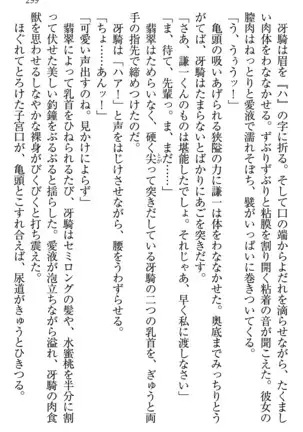 299
冴騎は眉を「ハ」の字に折る。そして口の端からよだれを垂らし、たくまし
い肉体をわななかせる。ずぶりずぶりと粘膜を割り開く粘着の音が聞こえた。
膣肉はねっとりと愛液で濡れそぼち、襞がいっぱいに巻きついてくる。彼女の
「う、うぅうッ!」
亀頭の吸いあげられる狭隘の力に謙一は体をわななかせた。奥底までみっちりとう
まらせると、冴騎はたまらないとばかりにあごを突きだす。
「ま、待て、先輩っ。まだ……」
「さあ、謙一くんのものは堪能したでしょ。それじゃあ、早く私に渡しなさい」
翡翠はためらいなく、硬く尖って突きだしている冴騎の二つの乳首を、ぎゅうと両
手の指先で締めつけたのだ。
「ちょ……あんッ!」
「可愛い声出すのね。見かけによらず」
翡翠によって乳首をひねりあげられ、冴騎はセミロングの髪や、水蜜桃を半分に割
って伏せた美しい釣鐘をぶるぶると揺らした。愛液が泡立ちながら溢れ、冴騎の肉食
獣を思わせるしなやかな裸身がびくびくと打ち震えた。
熱でとろけた子宮口が、亀頭とこすれ合えば、尿道がきゅうとひきつる。
冴騎は「ハァー!」と声をはじけさせながら、腰をうわずらせる。